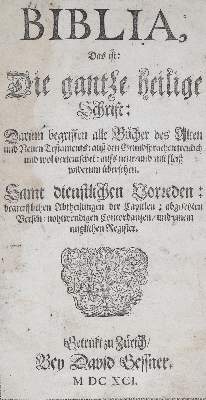 BIBLIA,
Das ist:
Die gantze heilige
Schrift:
Darinn begriffen alle Bücher des Alten
und Neuen Testaments: auß den Grundsprachen treulich
und wol verteutschet: aufs neue und mit fleiß
widerum übersehen.
Samt dienstlichen Vorreden:
begreiflichen Abtheilungen der Capitlen: abgesetzten
Versen: nohtwendigen Concordanzen/ und einem
nutzlichen Register.
Getrukt zu Zürich/
Bey David Gessner.
M DC XCI.